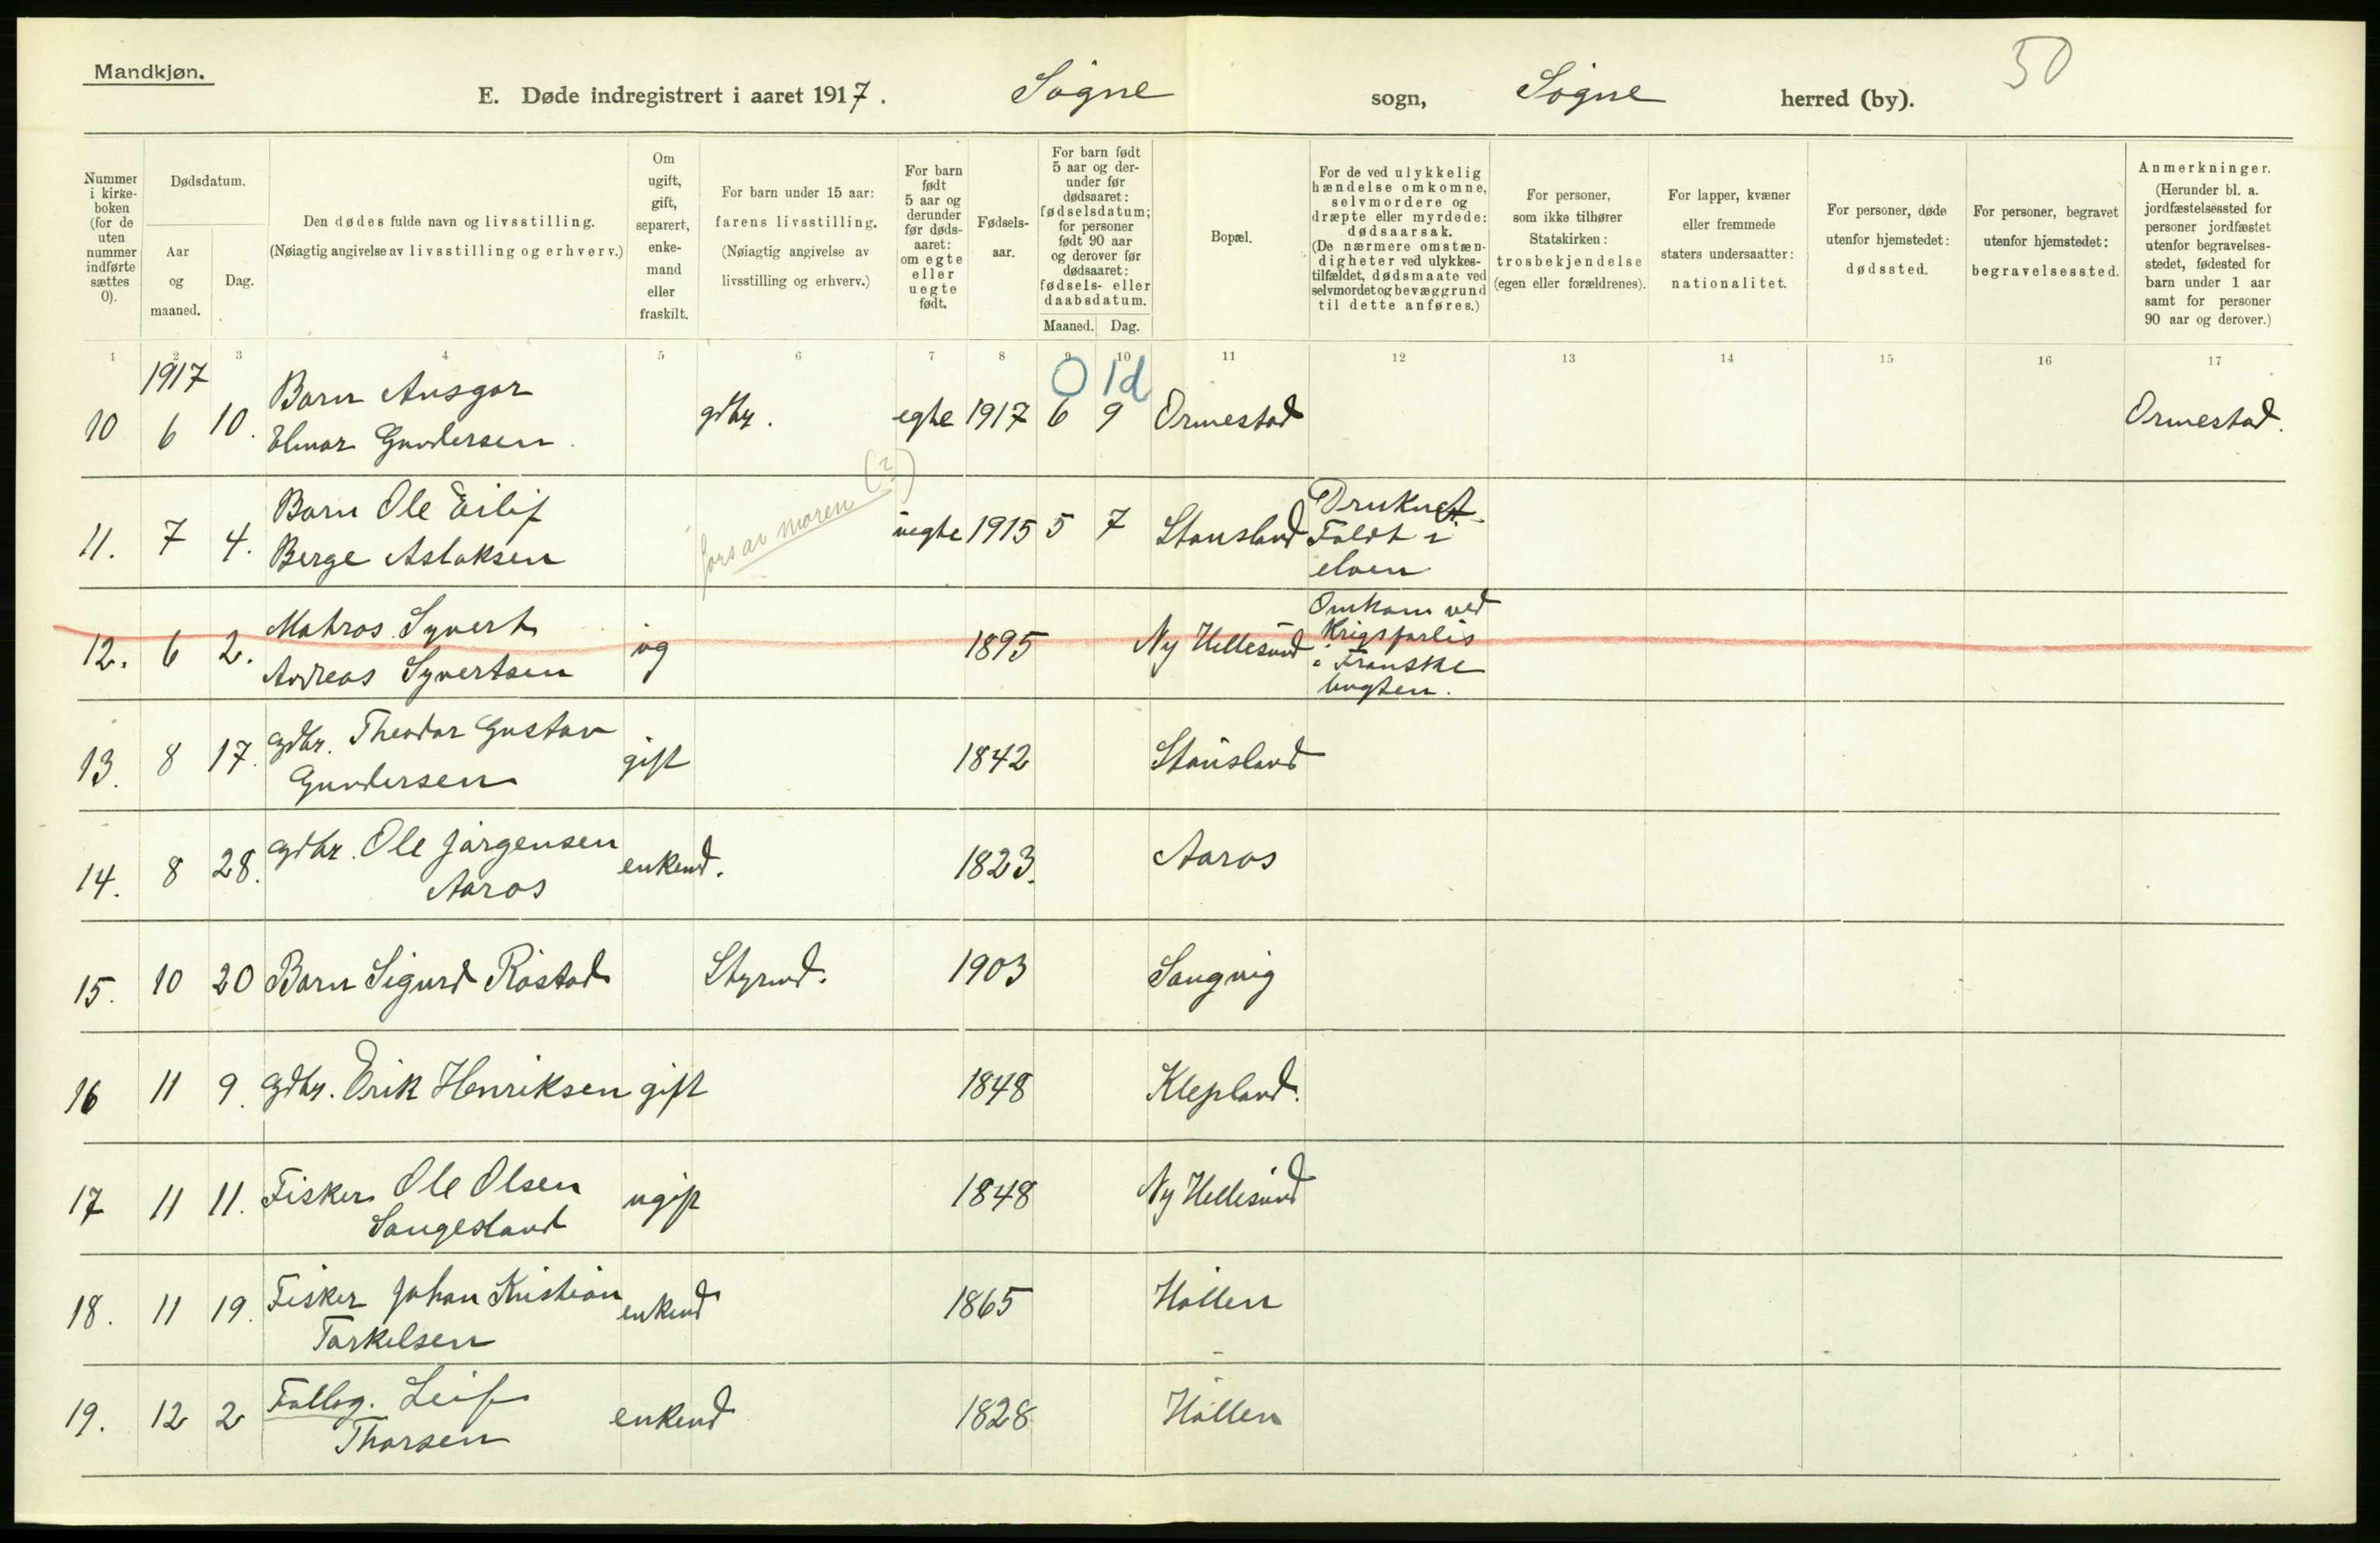 Mandkjøn.
50
E. Døde indregistrert i aaret 1917. Søgne sogn, Søgne herred (by).
Nummer i kirke-boken (for de uten nummer indførte sættes 0).
Dødsdatum.
Aar og maaned.
Dag.
Den dødes fulde navn og livsstilling.
(Nøiagtig angivelse av livsstilling og erhverv.)
Om ugift, gift, separert, enke-mand eller fraskilt.
For barn under 15 aar: farens livsstilling.
(Nøiagtig angivelse av livsstilling og erhverv.)
For barn født 5 aar og derunder før døds-aaret: om egte eller uegte født.
Fødsels-aar.
For barn født 5 aar og der-under før dødsaaret: fødselsdatum; for personer født 90 aar og derover før dødsaaret: fødsels- eller daabsdatum.
Maaned. Dag.
Bopæl.
For de ved ulykkelig hændelse omkomne, selvmordere og dræpte eller myrdede: dødsaarsak.
(De nærmere omstæn-digheter ved ulykkes-tilfældet, dødsmaate ved selvmordet og bevæggrund til dette anføres.)
For personer, som ikke tilhører Statskirken: trosbekjendelse (egen eller forældrenes).
For lapper, kvæner eller fremmede staters undersaatter: nationalitet.
For personer, døde utenfor hjemstedet: dødssted.
For personer, begravet utenfor hjemstedet: begravelsessted.
Anmerkninger.
(Herunder bl. a. jordfæstelsessted for personer jordfæstet utenfor begravelses-stedet, fødested for barn under 1 aar samt for personer 90 aar og derover.)
1 2 3 4 5 6 7 8 9 10 11 12 13 14 15 16 17
1917
0 1d
10 6 10. Barn Ansgar
Elmar Gundersen. gdbr. egte 1917 6 9 Ormestad Ormestad.
11. 7 4. Barn Ole Eilif
Berge Aslaksen fors av moren (?) uegte 1915 5 7 Stausland Druknet
Faldt i
elven
12. 6 2. Matros Syvert
Andreas Syvertsen ug 1895 Ny Hellesund Omkom ved
Krigsforlis
i Franske
bugten.
13. 8 17. gdbr. Theodor Gustav
Gundersen gift 1842 Stausland
14. 8 28. gdbr. Ole Jørgensen
Aaros enkemd. 1823. Aaros
15. 10 20 Barn Sigurd Røstad Styrmd. 1903 Sangvig
16 11 9. gdbr. Erik Henriksen gift 1848 Klepland.
17 11 11. Fisker Ole Olsen
Langeland ugift 1848 Ny Hellesund
18. 11 19. Fisker Johan Kristian
Tarkelsen enkemd 1865 Høllen
19. 12 2 Fattig. Leif
Thorsen enkemd 1828 Høllen